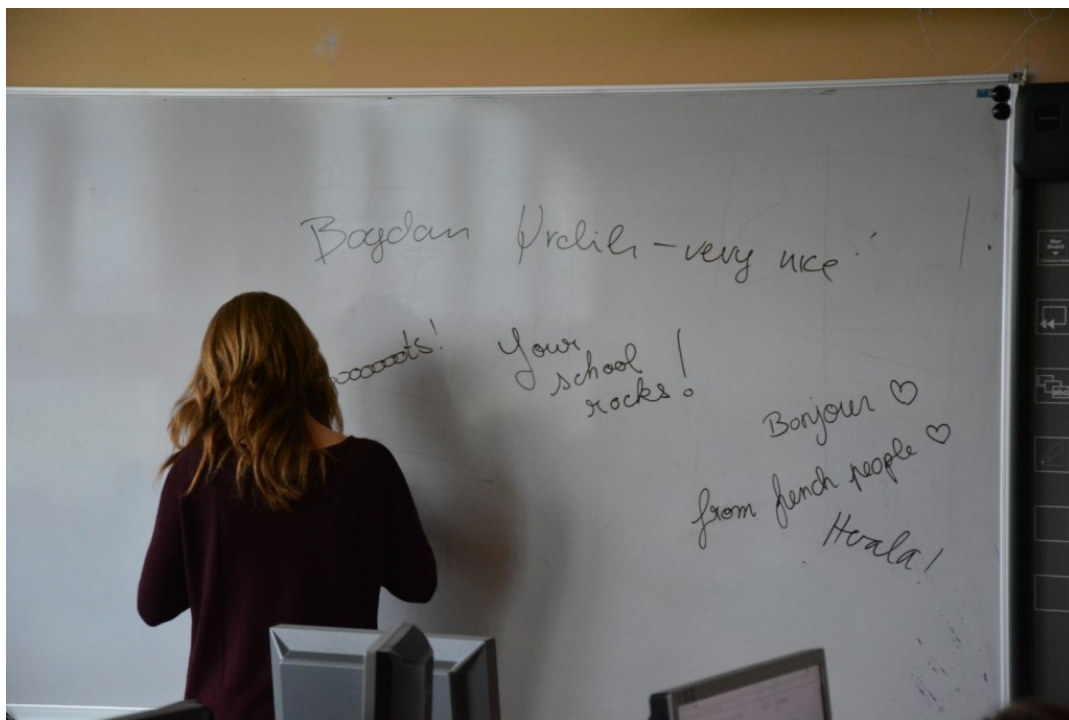 Bogdan – very nice
Your
school
rocks!
Bonjour ♡
from french people ♡
Hvala!